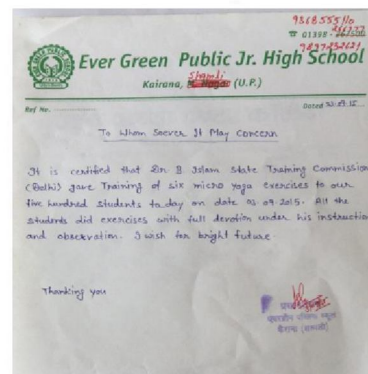 9368555110
☎ 01398-
9897232621
Ever Green Public Jr. High School
Shamli
Kairana, (U.P.)
Ref No.
Dated 03.09.15
To Whom Soever It May Concern
It is certified that Dr. B Islam State Training Commission
(Delhi) gave Training of six micro yoga exercises to our
five hundred students to day on date 03.09.2015. All the
students did exercises with full devotion under his instruction
and observation. I wish for bright future.
Thanking you